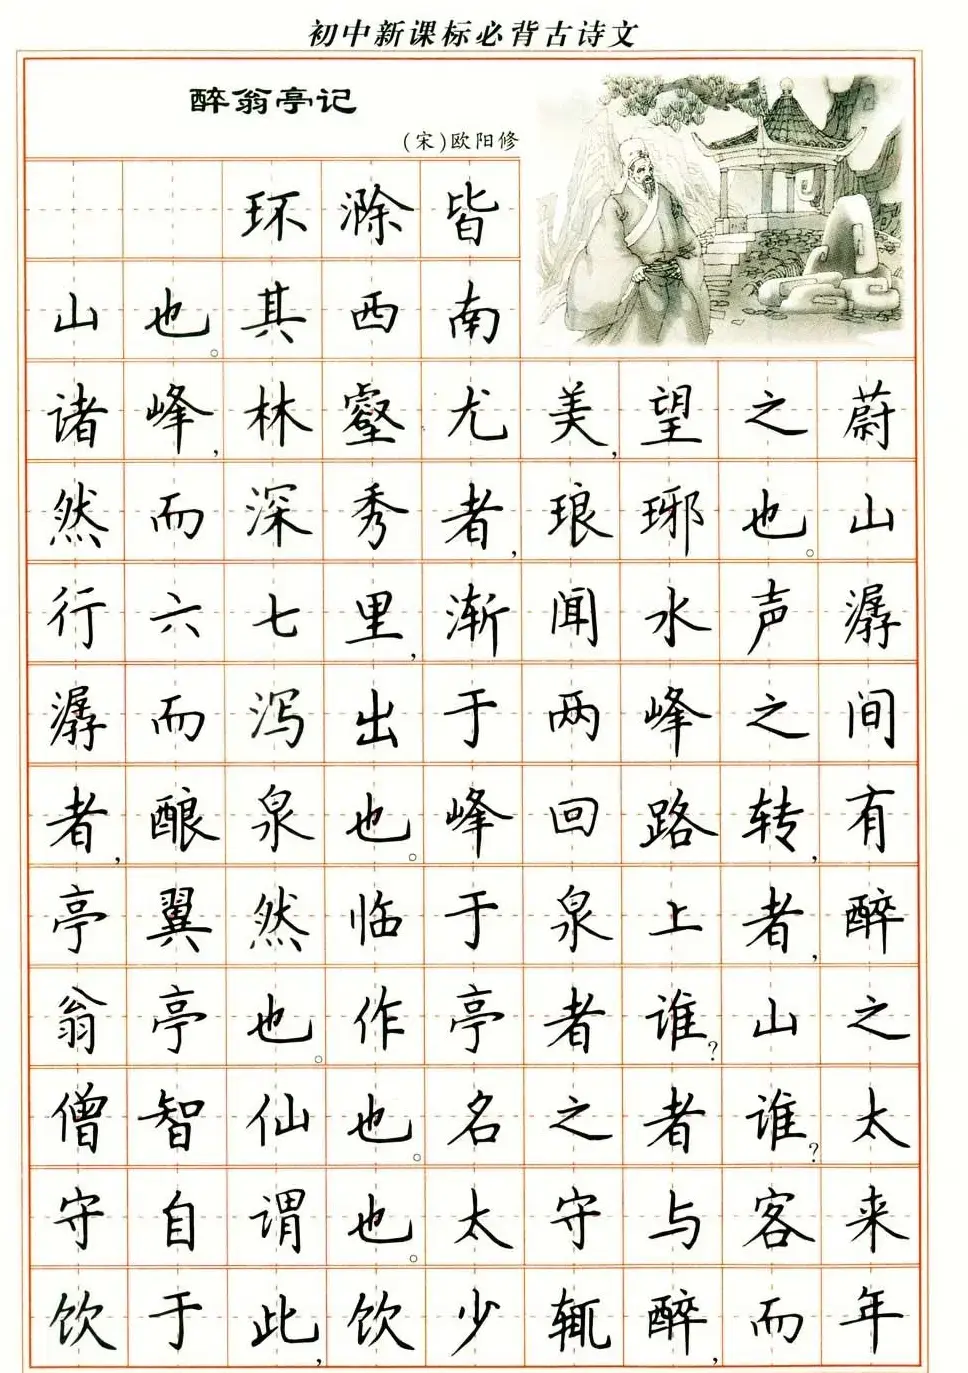 初中新课标必背古诗文
醉翁亭记
(宋)欧阳修
环滁皆
山也。其西南
诸峰,林壑尤美,望之蔚
然而深秀者,琅琊也。山
行六七里,渐闻水声潺
潺而泻出于两峰之间
者,酿泉也。峰回路转,有
亭翼然临于泉上者,醉
翁亭也。作亭者谁?山之
僧智仙也。名之者谁?太
守自谓也。太守与客来
饮于此,饮少辄醉,而年